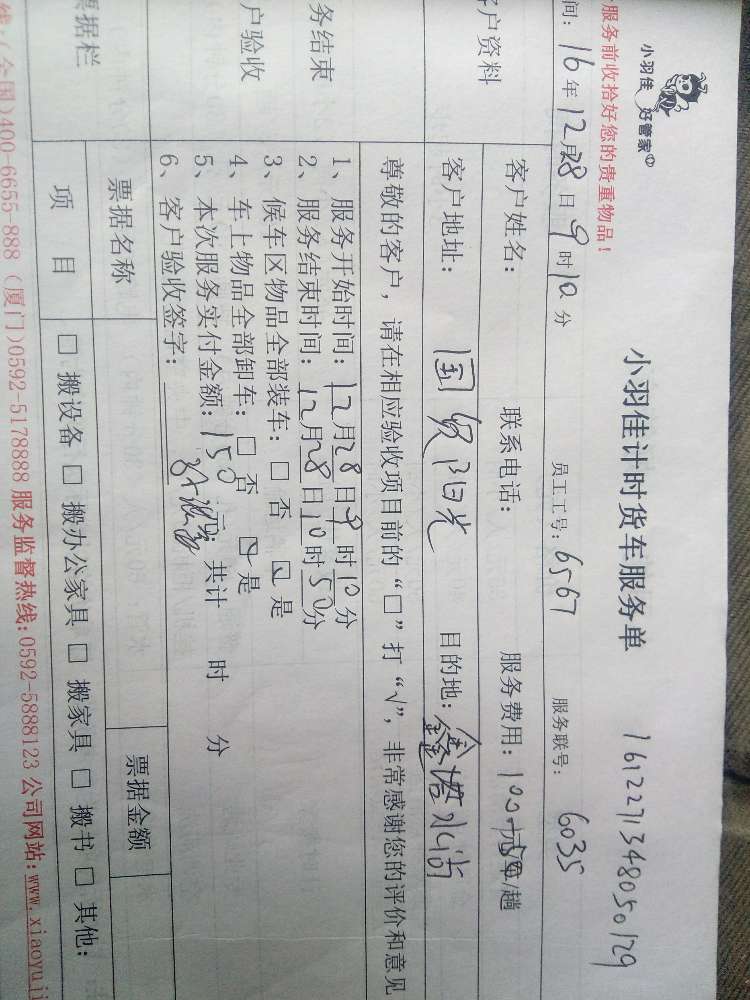 小羽佳 好管家
小羽佳计时货车服务单 1612271348050129
服务前收拾好您的贵重物品!
间: 16年12月28日9时10分 员工工号: 6567 服务联号: 6035
户资料
客户姓名: 联系电话: 服务费用: 100 /趟
客户地址: 国贸阳光 目的地:
尊敬的客户, 请在相应验收项目前的“□”打“√”, 非常感谢您的评价和意见
务结束
户验收
1、服务开始时间: 12月28日9时10分
2、服务结束时间: 12月28日10时50分
3、候车区物品全部装车: □ 否 ☑ 是
4、车上物品全部卸车: □ 否 ☑ 是
5、本次服务实付金额: 150 元; 共计 时 分
6、客户验收签字:
票据栏
票据名称 票据金额
项 目 □ 搬设备 □ 搬办公家具 □ 搬家具 □ 搬书 □ 其他:
线:(全国)400-6655-888 (厦门)0592-5178888 服务监督热线:0592-5888123 公司网站:www.xiaoyuji